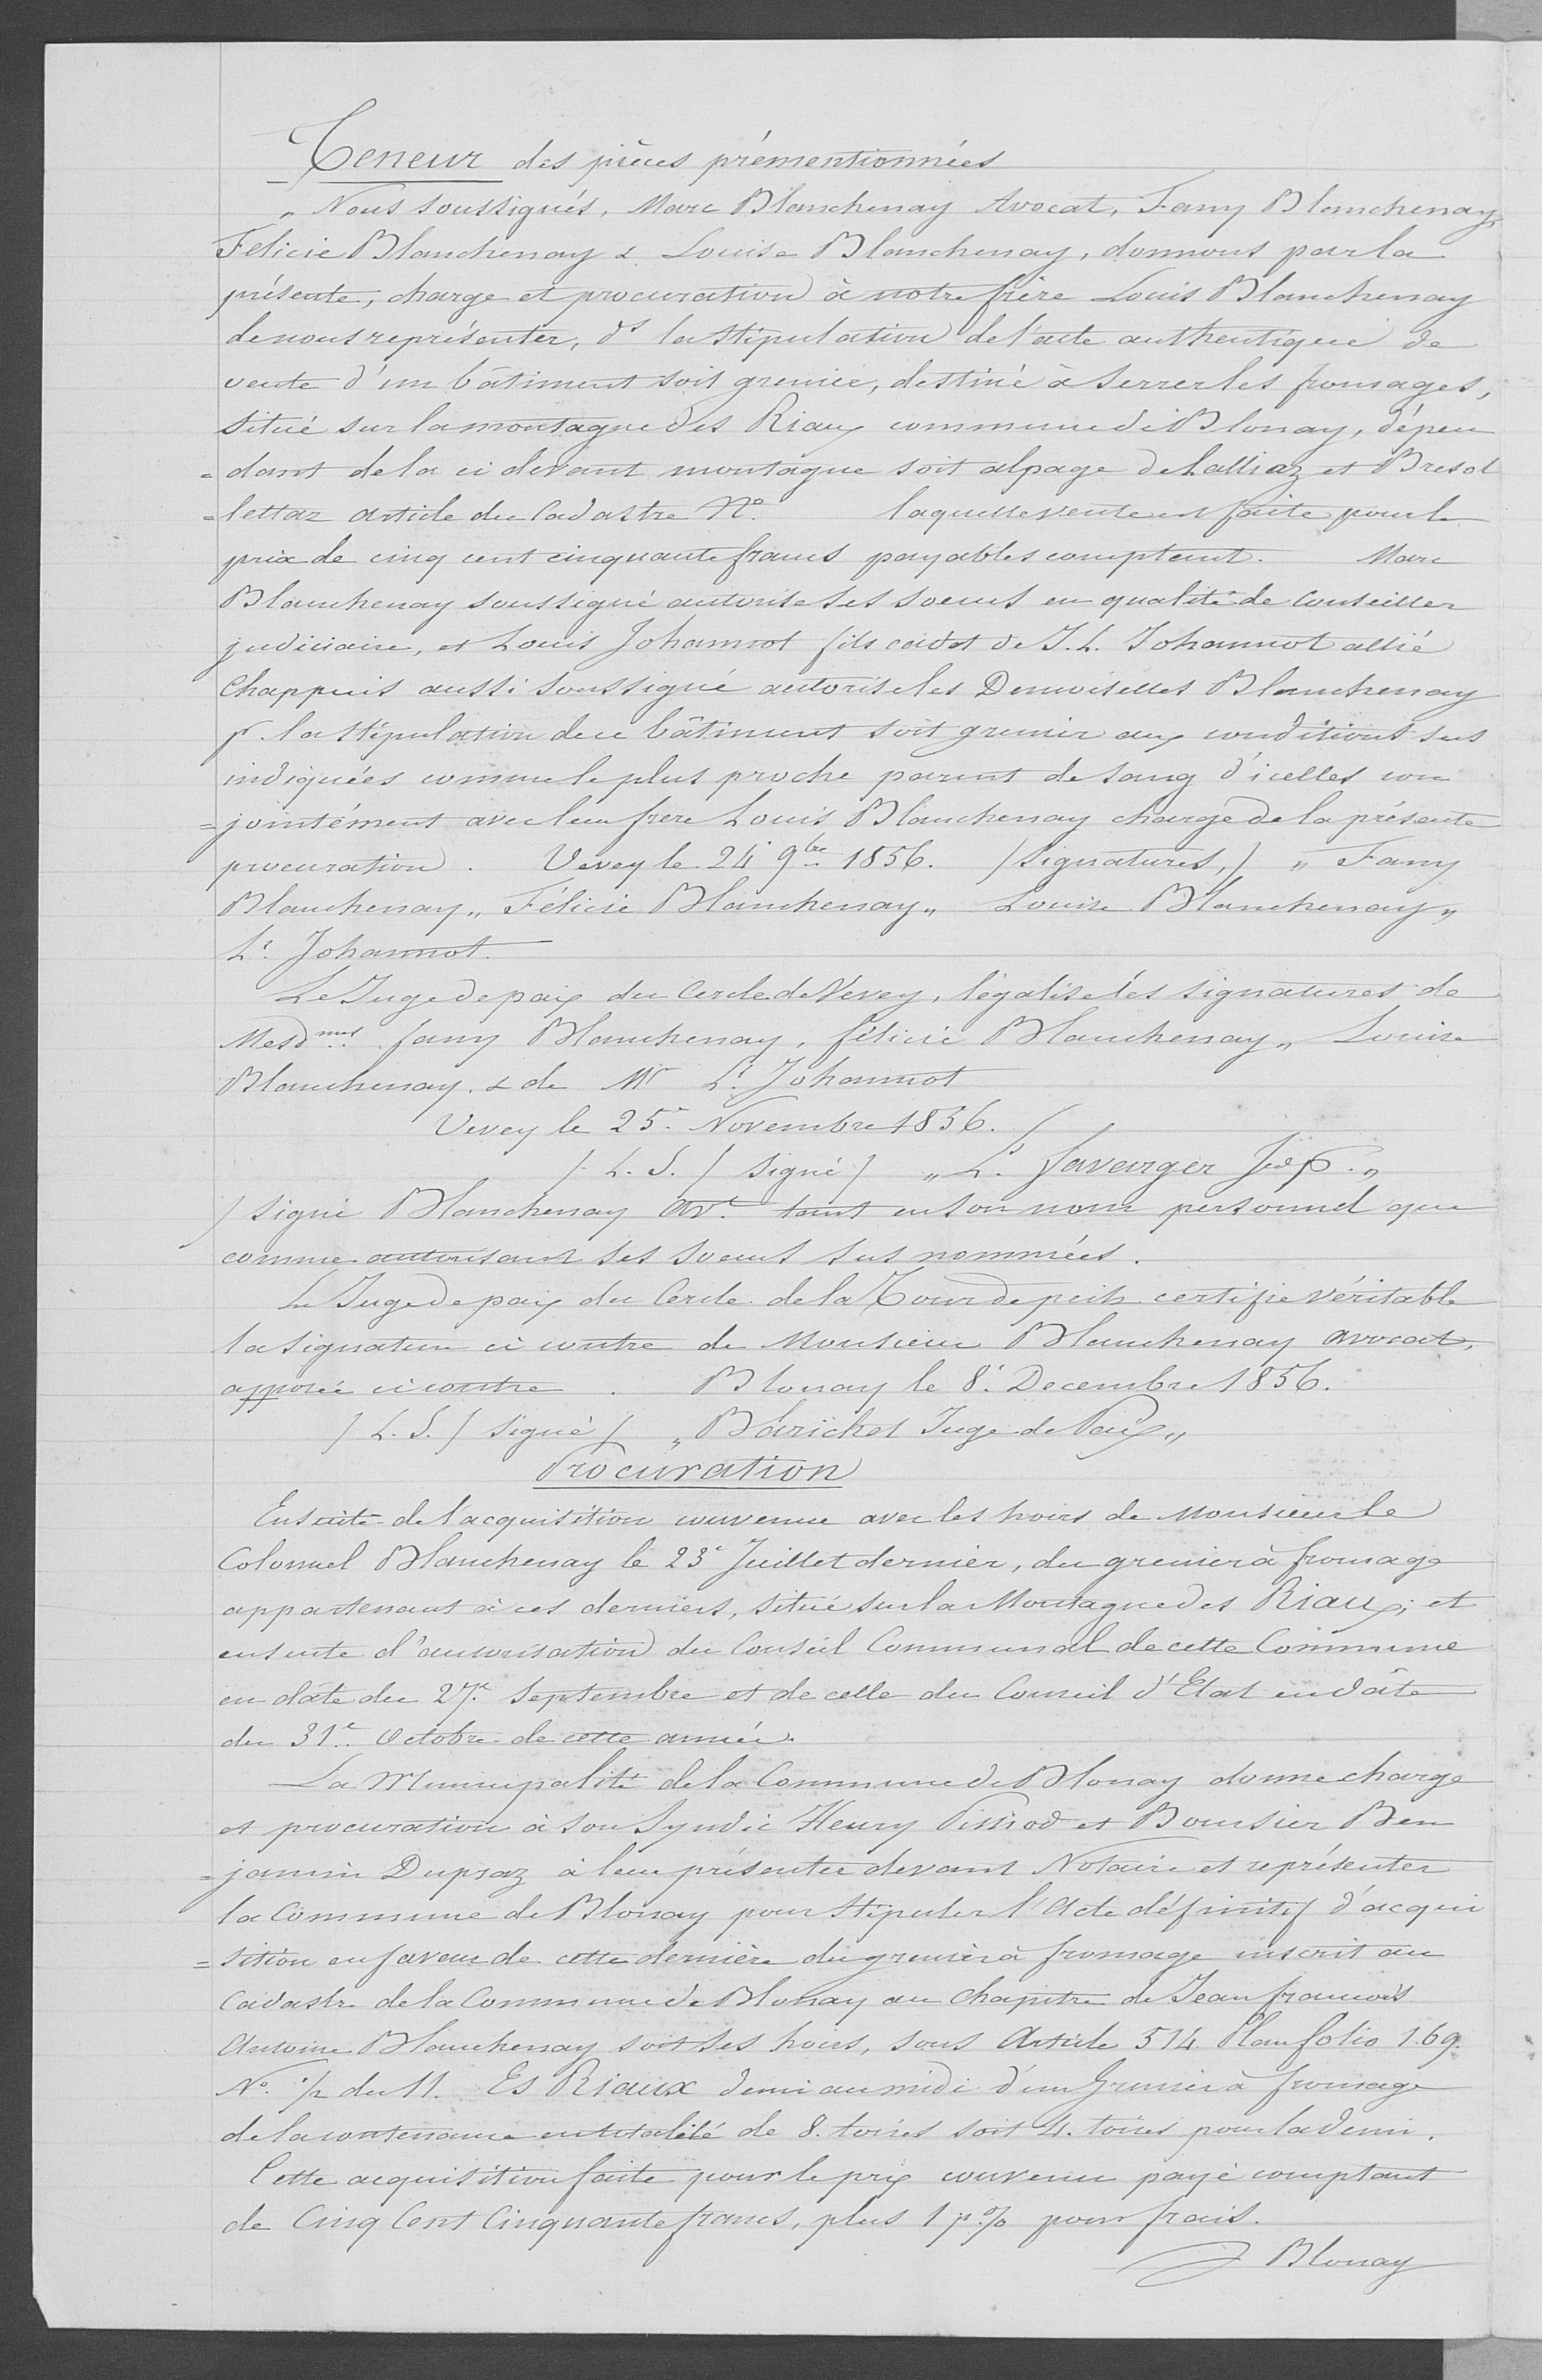 Teneur des pièces prémentionnées
„ Nous soussignés, Marc Blanchenay Avocat, Fany Blanchenay,
Félicie Blanchenay & Louise Blanchenay, donnons par la
présente, charge et procuration à notre frère Louis Blanchenay
de nous représenter, ds la stipulation de l'acte authentique de
vente d'un bâtiment soit grenier, destiné à serrer les fromages,
situé sur la montagne des Riaux commune de Blonay, dépen
= dant de la ci devant montagne soit alpage de Lalliaz et Bresol
= lettaz article du Cadastre No. laquelle vente est faite pour le
prix de cinq cent cinquante francs payables comptant. Marc
Blanchenay soussigné autorise ses soeurs en qualité de Conseiller
judiciaire, et Louis Johannot fils cadet de J. L. Johannot allié
Chappuis aussi soussigné autorise les Demoiselles Blanchenay
pr. la stipulation de ce bâtiment soit grenier aux conditions sus
indiquées comme le plus proche parent de sang d'icelles con
= jointément avec leur frère Louis Blanchenay chargé de la présente
procuration. Vevey le 24e 9bre 1856. / signatures, / „ Fany
Blanchenay „ Félicie Blanchenay „ Louise Blanchenay „
Ls Johannot.
Le Juge de paix du Cercle de Vevey, légalise les signatures de
Mesdmes fany Blanchenay, félicie Blanchenay „ Louise
Blanchenay. & de Mr Ls Johannot
Vevey le 25e Novembre 1856.
/ L. S. / signé / „ Ls. Favarger J. de p. „
/ signé Blanchenay Avt. tant en son nom personnel que
comme autorisant ses soeurs sus nommées.
Le Juge de paix du Cercle de la Tour de peilz certifie véritable
la signature ci contre de Monsieur Blanchenay avocat,
apposée ci contre. Blonay le 8e Decembre 1856.
/ L. S. / signé / „ Bärichet Juge de Paix „
Procuration
Ensuite de l'acquisition convenue avec les hoirs de Monsieur le
Colonnel Blanchenay le 23e Juillet dernier, du grenier à fromage
appartenant à ces derniers, situé sur la Montagne des Riaux; et
ensuite d'autorisation du Conseil Communal de cette Commune
en date du 27e Septembre et de celle du Conseil d'Etat en date
du 31e Octobre de cette année.
La Municipalité de la Commune de Blonay donne charge
et procuration à son Syndic Henry Pilliod et Boursier Ben
= jamin Dupraz à leur présenter devant Notaire et représenter
la Commune de Blonay pour stipuler l'Acte définitif d'acqui
= sition en faveur de cette dernière du grenier à fromage inscrit au
Cadastre de la Commune de Blonay au Chapitre de Jean francois
Antoine Blanchenay soit ses hoirs, sous Article 514 Plan folio 169.
No. 1/2 du 11. Es Riaux demi au midi d'un Grenier à fromage
de la contenance en totalité de 8. toises soit 4. toises pour la demi.
Cette acquisition faite pour le prix convenu payé comptant
de Cinq Cent Cinquante francs, plus 1 p % pour frais.
Blonay